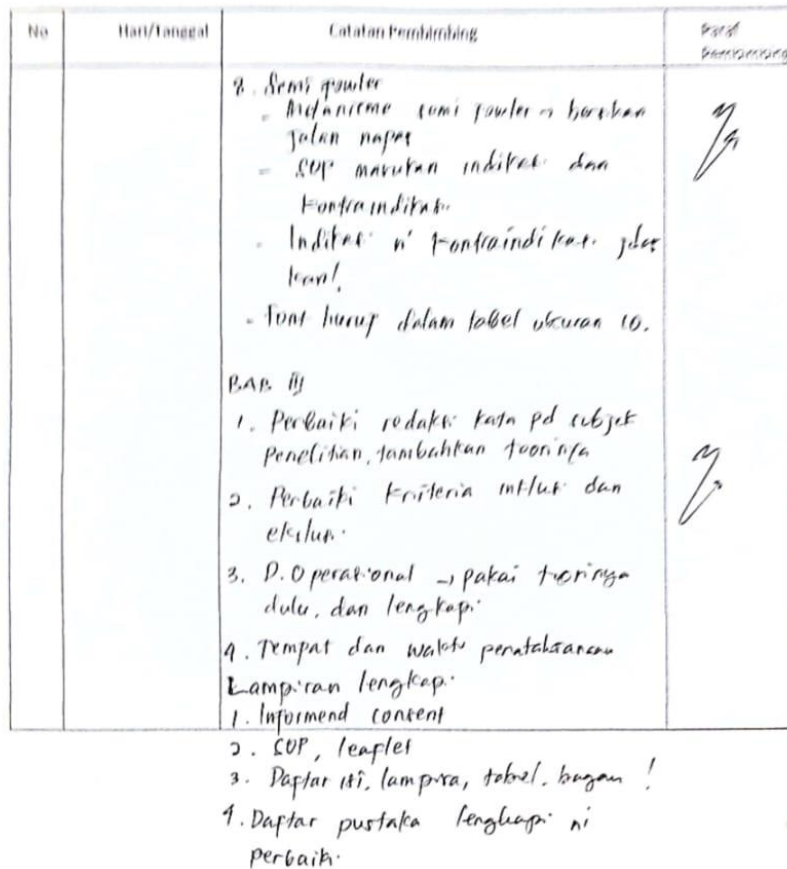 No Hari/Tanggal Catatan Pembimbing Paraf
Pembimbing
8. Semi fowler
- Mekanisme semi fowler → bersihan
jalan napas
- SOP masukan indikasi dan
kontraindikasi
- Indikasi n' kontraindikasi jelas
kan!
- Font huruf dalam tabel ukuran 10.
BAB III
1. Perbaiki redaksi kata pd subjek
penelitian, tambahkan teorinya
2. Perbaiki kriteria inklusi dan
ekslusi.
3. D. Operasional → pakai teorinya
dulu, dan lengkapi.
4. Tempat dan waktu penatalaksanaan
Lampiran lengkapi.
1. Informend consent
2. SOP, leaflet
3. Daftar isi, lampira, tabel, bagan !
4. Daftar pustaka lengkapi ni
perbaiki.